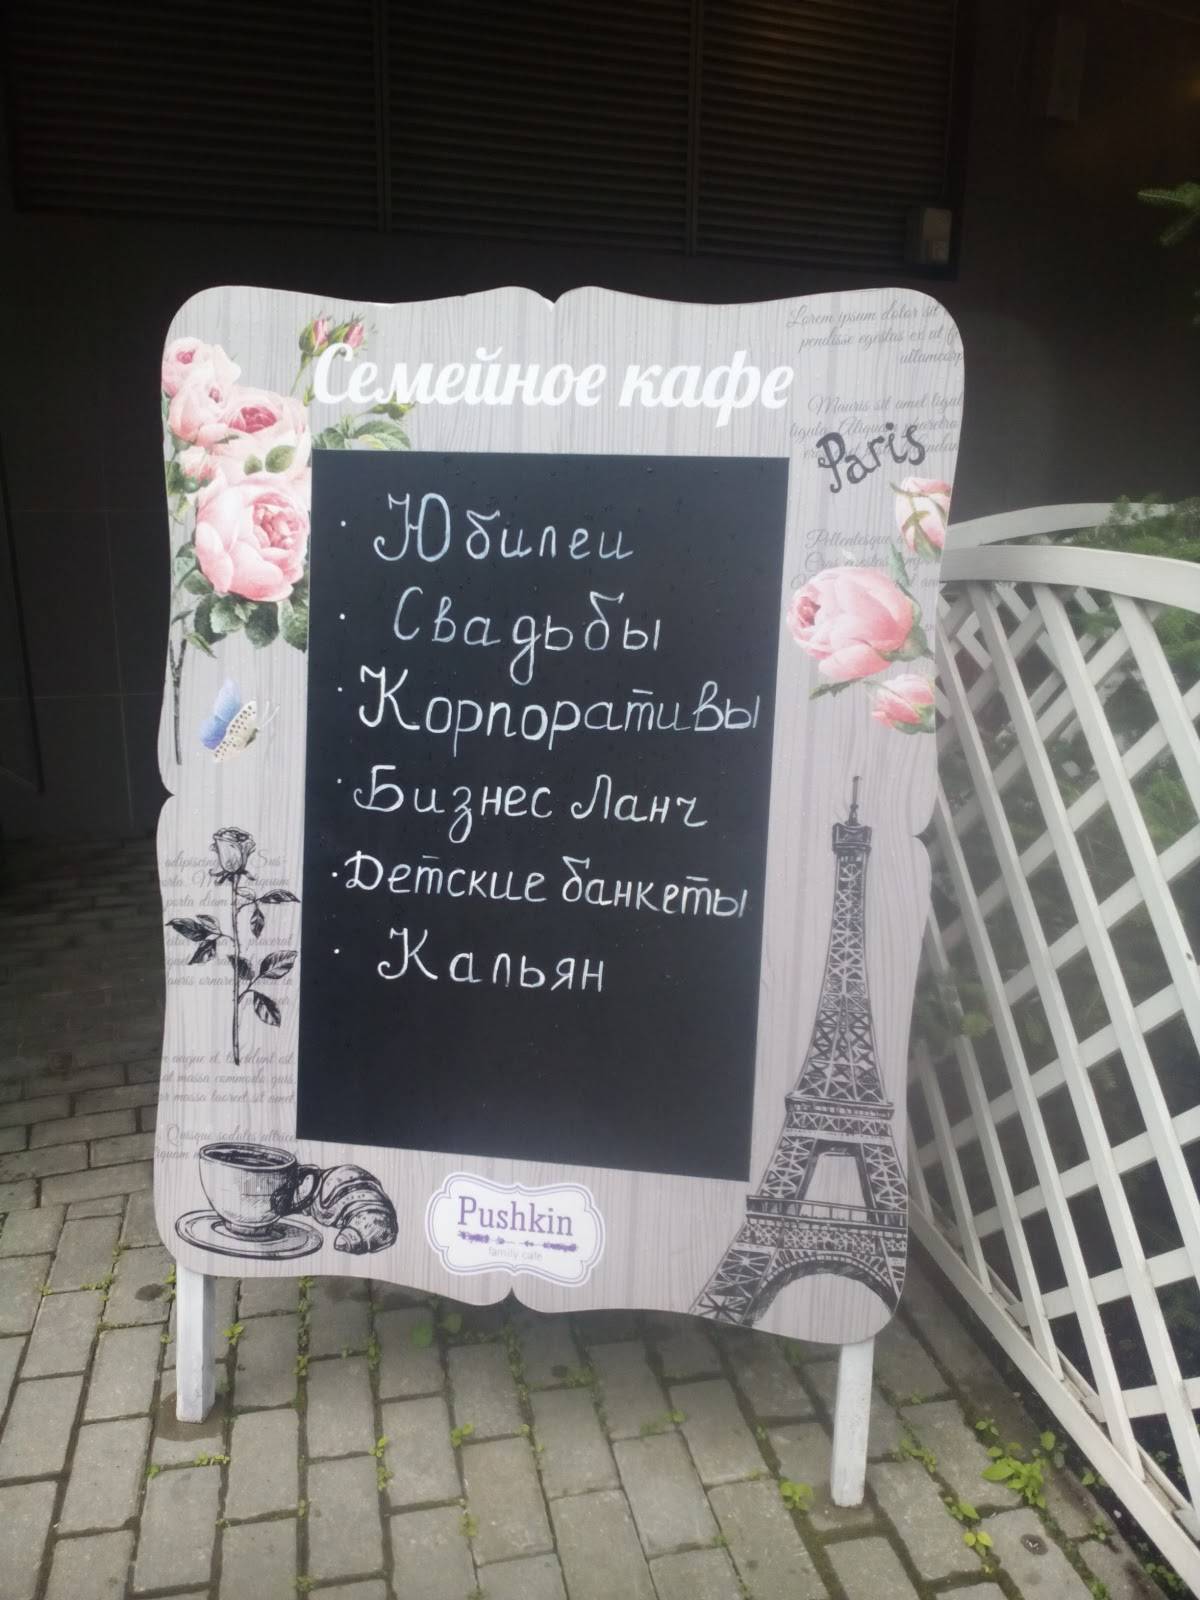 Семейное кафе
Lorem ipsum dolor sit
pendisse egestas ex at
ullamcorp
Mauris sit amet ligul
ligula. Aliquam pharetra
Paris
Pellentesque
· Юбилеи
· Свадьбы
· Корпоративы
· Бизнес Ланч
· Детские банкеты
· Кальян
adipiscing
porta diam
placerat
mauris ornare
augue et, tincidunt est
at massa commodo quis,
or massa laoreet sit amet
Quisque sodales ultrice
Pushkin
family cafe